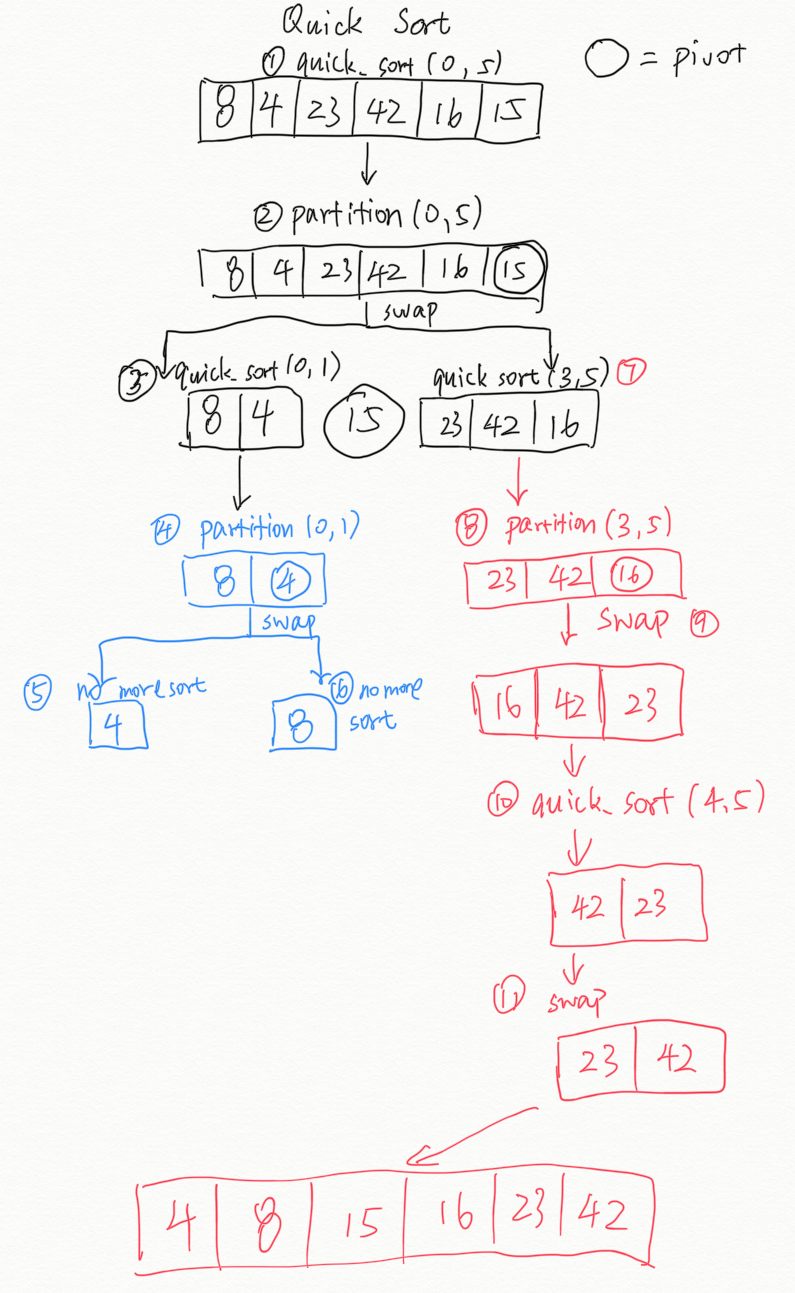 Quick Sort
① quick_sort (0, 5)
◯ = pivot
8 4 23 42 16 15
② partition (0, 5)
8 4 23 42 16 15
swap
③ quick_sort (0, 1)
quick sort (3, 5) ⑦
8 4
15
23 42 16
④ partition (0, 1)
8 4
swap
⑤ no more sort
4
⑥ no more
sort
8
⑧ partition (3, 5)
23 42 16
swap ⑨
16 42 23
⑩ quick_sort (4, 5)
42 23
⑪ swap
23 42
4 8 15 16 23 42